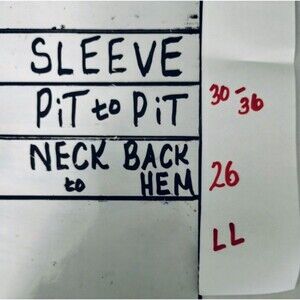 SLEEVE
PiT to PiT
30-36
NECK BACK
to HEM
26
LL